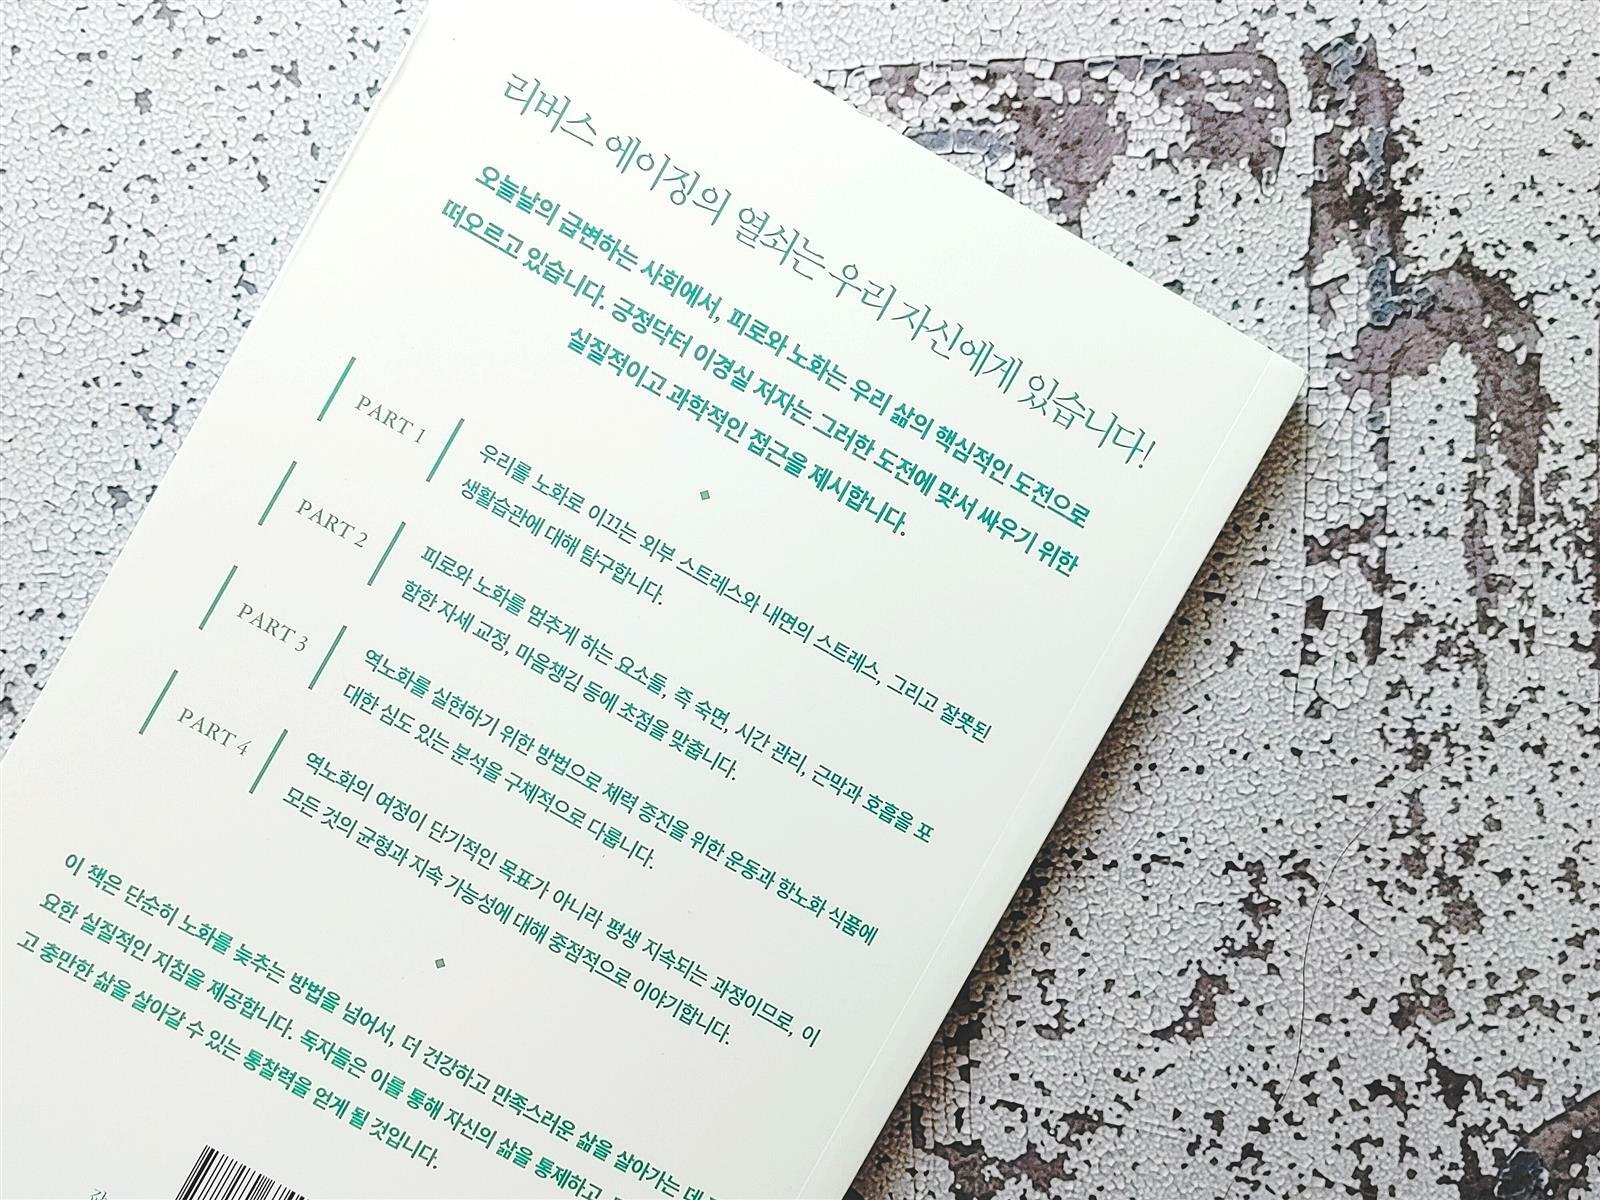 리버스 에이징의 열쇠는 우리 자신에게 있습니다!
오늘날의 급변하는 사회에서, 피로와 노화는 우리 삶의 핵심적인 도전으로
떠오르고 있습니다. 긍정닥터 이경실 저자는 그러한 도전에 맞서 싸우기 위한
실질적이고 과학적인 접근을 제시합니다.
PART 1
우리를 노화로 이끄는 외부 스트레스와 내면의 스트레스, 그리고 잘못된
생활습관에 대해 탐구합니다.
PART 2
피로와 노화를 멈추게 하는 요소들, 즉 숙면, 시간 관리, 근막과 호흡을 포
함한 자세 교정, 마음챙김 등에 초점을 맞춥니다.
PART 3
역노화를 실현하기 위한 방법으로 체력 증진을 위한 운동과 항노화 식품에
대한 심도 있는 분석을 구체적으로 다룹니다.
PART 4
역노화의 여정이 단기적인 목표가 아니라 평생 지속되는 과정이므로, 이
모든 것의 균형과 지속 가능성에 대해 중점적으로 이야기합니다.
이 책은 단순히 노화를 늦추는 방법을 넘어서, 더 건강하고 만족스러운 삶을 살아가는 데
요한 실질적인 지침을 제공합니다. 독자들은 이를 통해 자신의 삶을 통제하고,
고 충만한 삶을 살아갈 수 있는 통찰력을 얻게 될 것입니다.